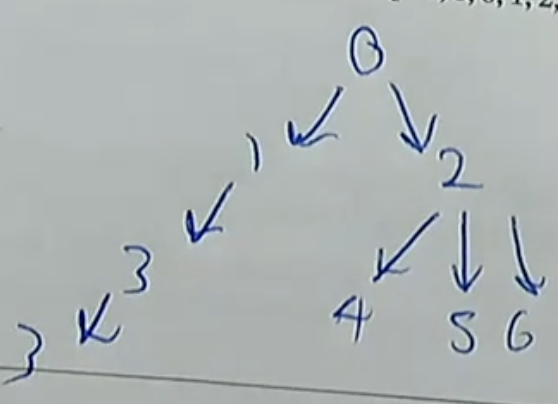 0
1 2
3
4 5 6
3